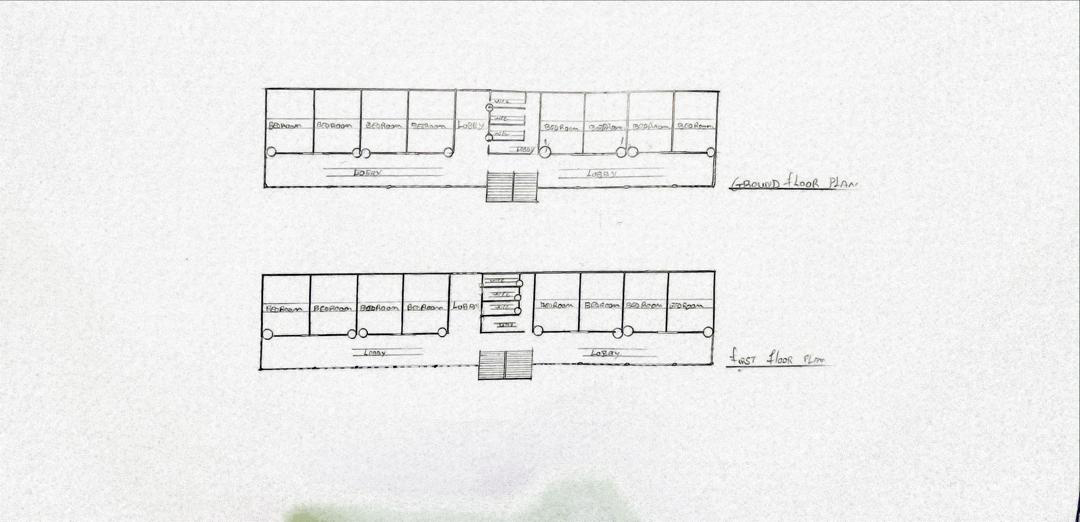 BEDROOM BEDROOM BEDROOM BEDROOM LOBBY BEDROOM BEDROOM BEDROOM BEDROOM
LOBBY
LOBBY LOBBY
GROUND fLOOR PLAN
BEDROOM BEDROOM BEDROOM BEDROOM LOBBY BEDROOM BEDROOM BEDROOM BEDROOM
LOBBY LOBBY
fIRST floor PLAN